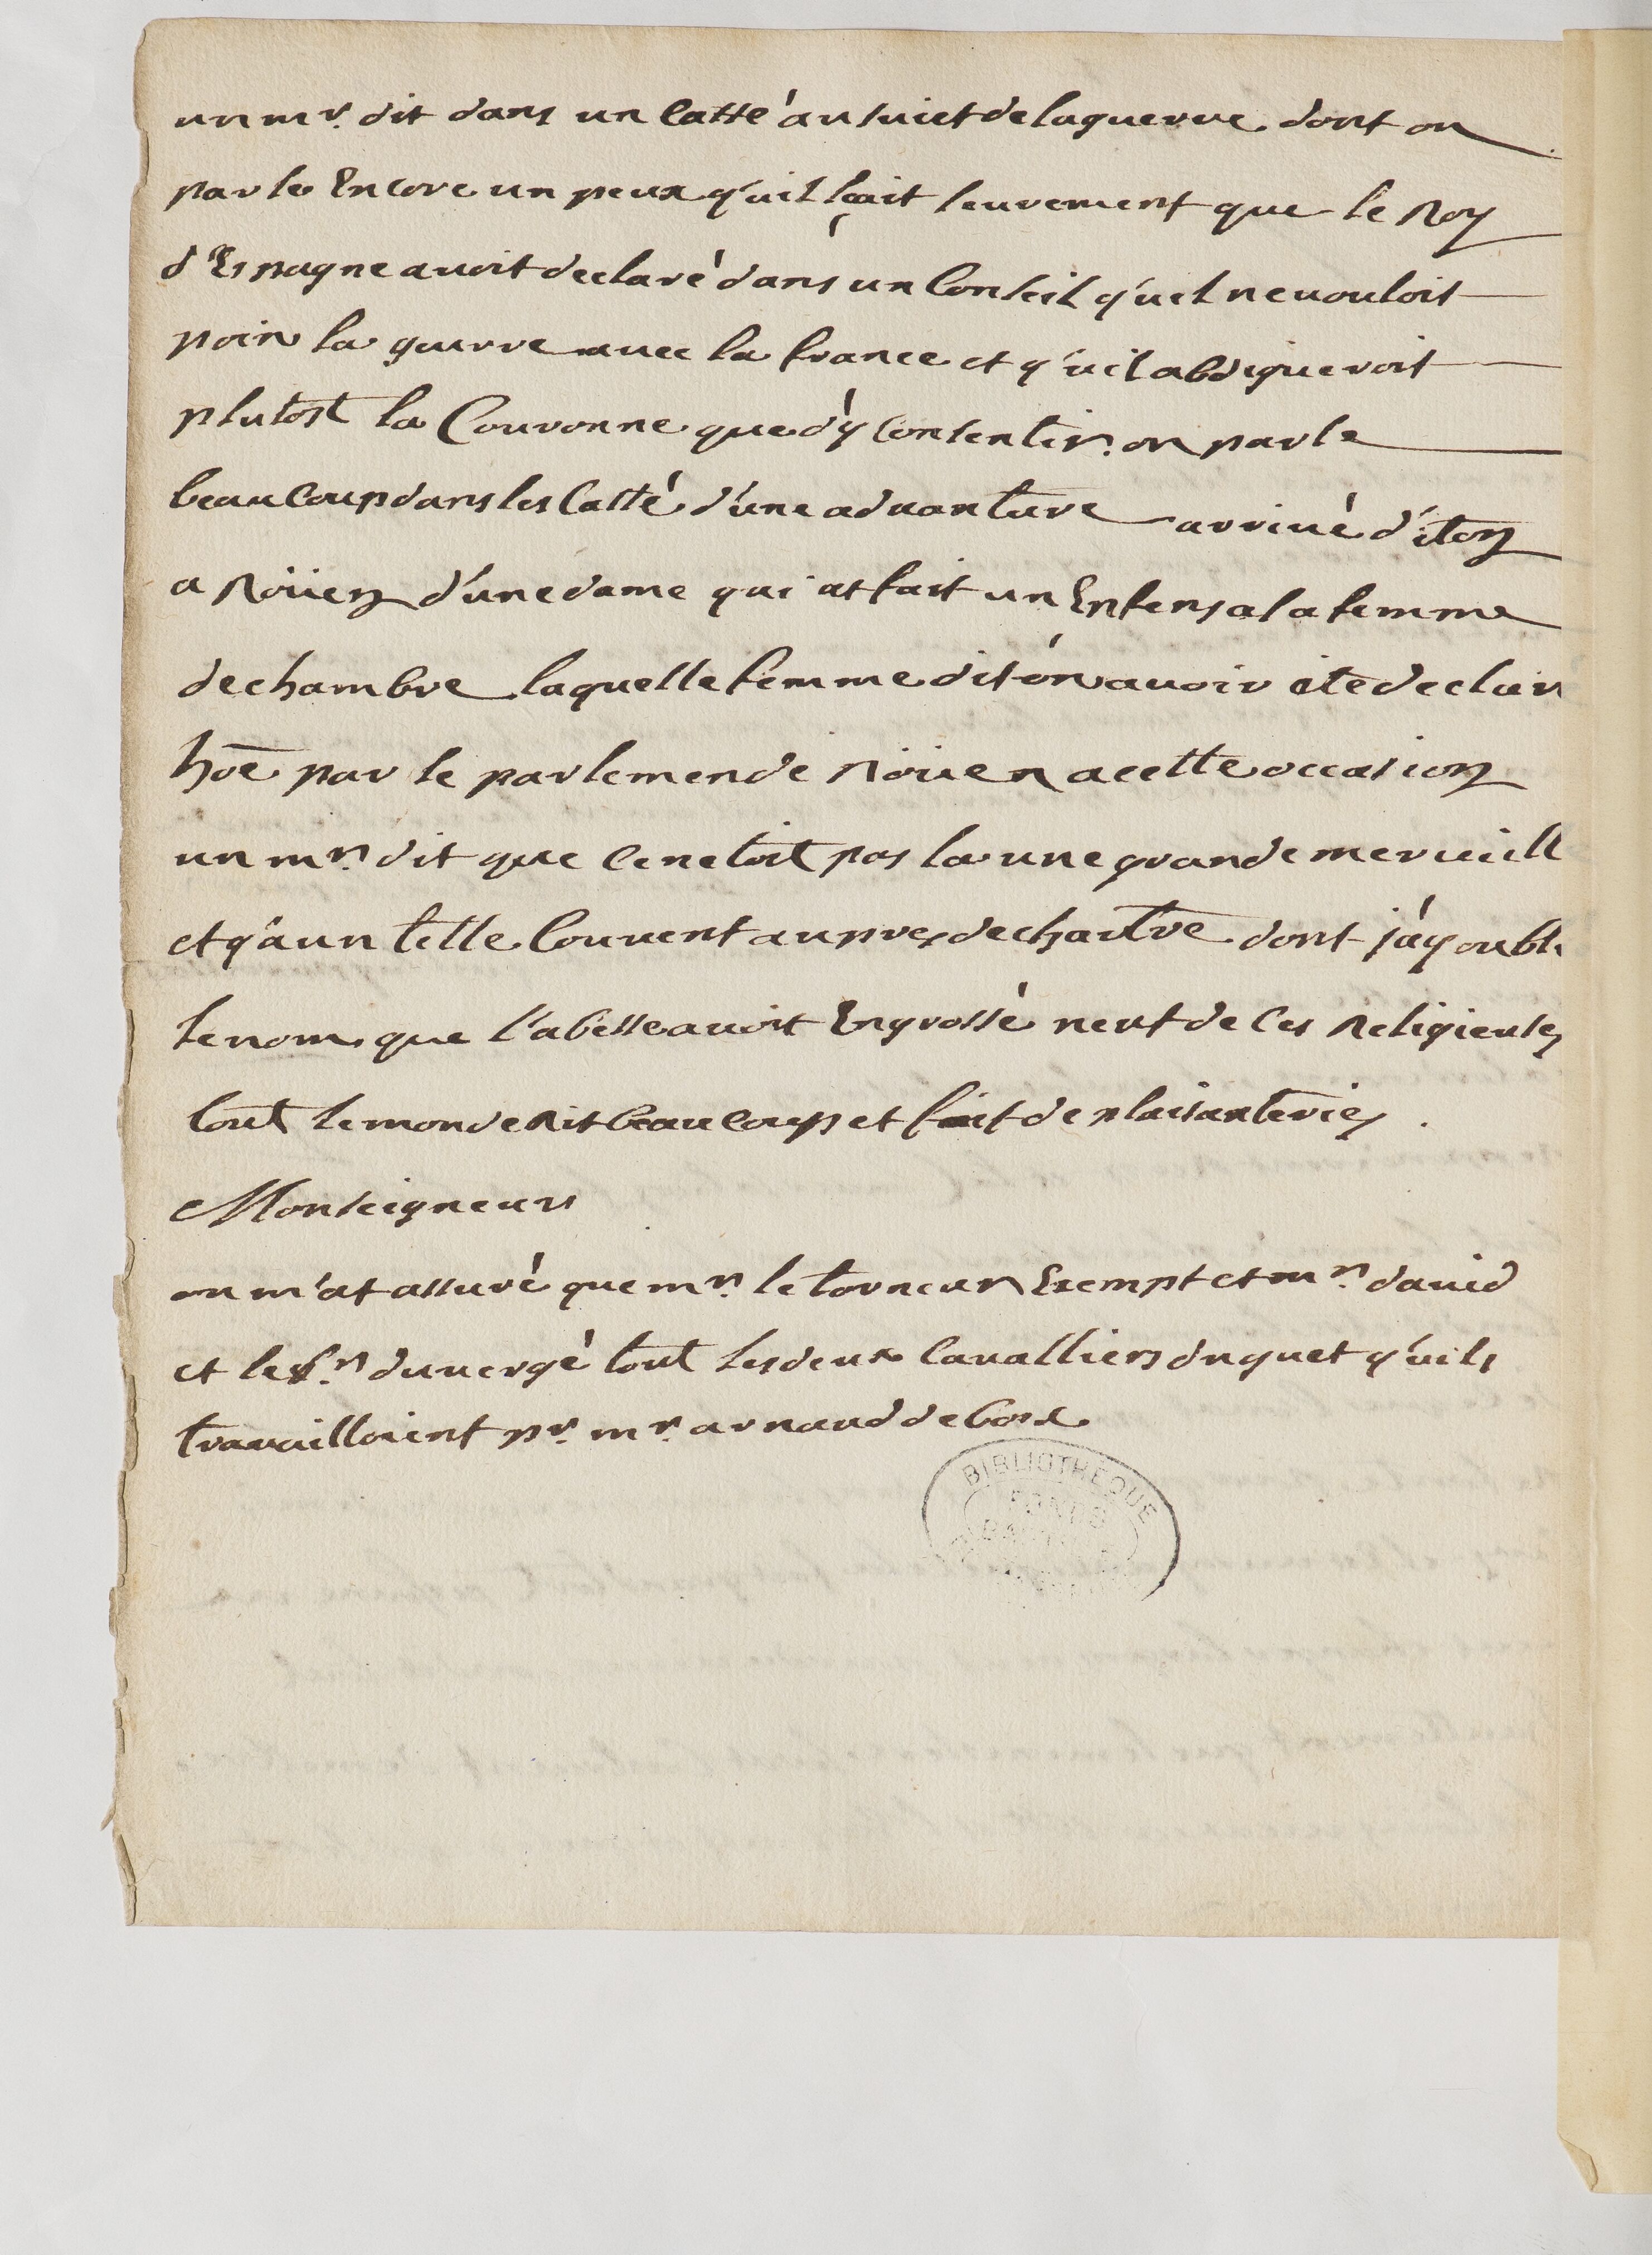 un mr. dit dans un caffé au suiet de la guerre dont on
parle Encore un peux q'uil sçait seurement que le Roy
d'Espagne auoit declaré dans un Conseil q'uil ne uouloit
poin la guerre auec la france et q'uil abdiqueroit
plutost la Couronne que d'y consentir. on parle
beaucoup dans les Caffé d'une aduanture arriué dit on
a Roüen d'une dame qui at fait un Enfens a la femme
de chambre laquelle femme dit on auoir eté declar
hōe par le parlemen de Roüen a cette occasion
un mr. dit que ce netoit pas la une grande merueill
et q'a un telle Couuent aupres de chartre dont j'ay oubl
le nom que l'abesse auoit Engrossé neuf de ces Religieuses
tout le monde Rit beaucoup et fait de plaisanteries.
Monseigneur
on m'at assuré que mr. le torneur Exempt et mr. dauid
et le sr. duuergé tout les deux Caualliers du guet q'uils
trauailloient pr. mr. arnaud de
BIBLIOTHEQUE
FONDS